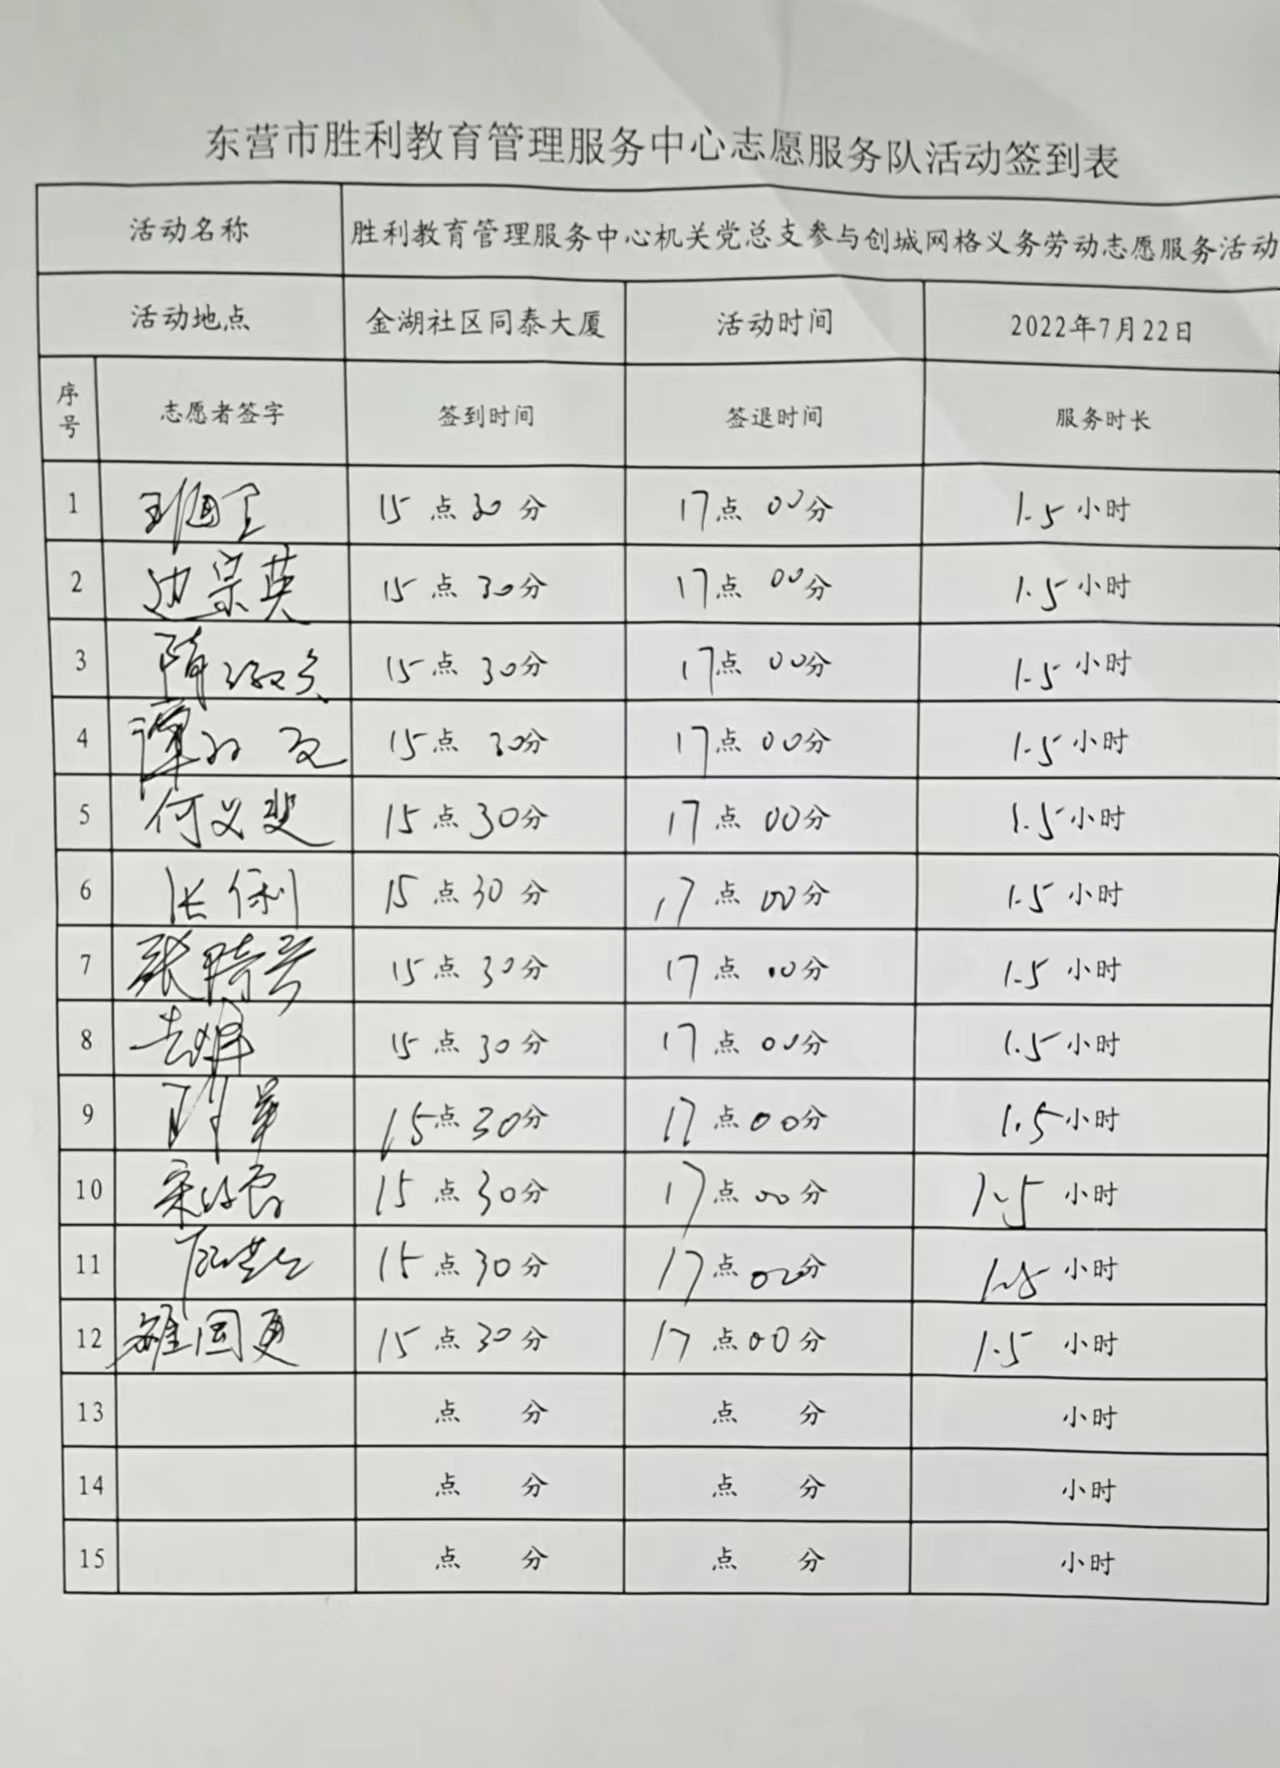 东营市胜利教育管理服务中心志愿服务队活动签到表
活动名称 胜利教育管理服务中心机关党总支参与创城网格义务劳动志愿服务活动
活动地点 金湖社区同泰大厦 活动时间 2022年7月22日
序号 志愿者签字 签到时间 签退时间 服务时长
1 15点30分 17点00分 1.5小时
2 边宗英 15点30分 17点00分 1.5小时
3 15点30分 17点00分 1.5小时
4 15点30分 17点00分 1.5小时
5 何义斐 15点30分 17点00分 1.5小时
6 张俐 15点30分 17点00分 1.5小时
7 15点30分 17点00分 1.5小时
8 15点30分 17点00分 1.5小时
9 15点30分 17点00分 1.5小时
10 15点30分 17点00分 1.5小时
11 15点30分 17点00分 1.5小时
12 15点30分 17点00分 1.5小时
13 点 分 点 分 小时
14 点 分 点 分 小时
15 点 分 点 分 小时